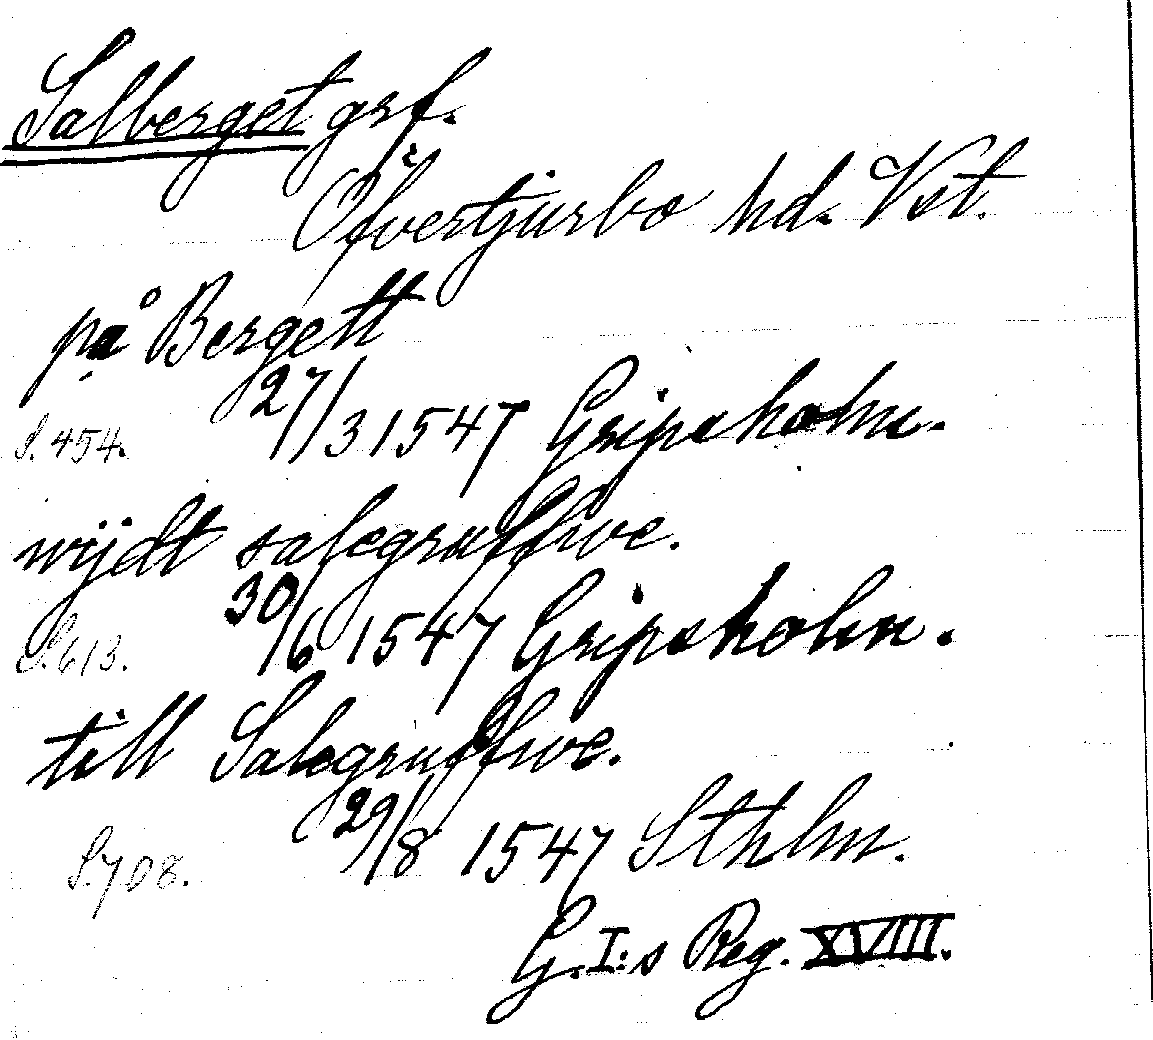 Salberget grf.
Öfvertjurbo hd. Vst.
på Bergett
S. 454. 27/3 1547 Gripsholm.
wijdt salegruffwe.
S. 613. 30/6 1547 Gripsholm.
till Salegruffwe.
S. 708. 29/8 1547 Sthlm.
G. I:s Reg. XVIII.